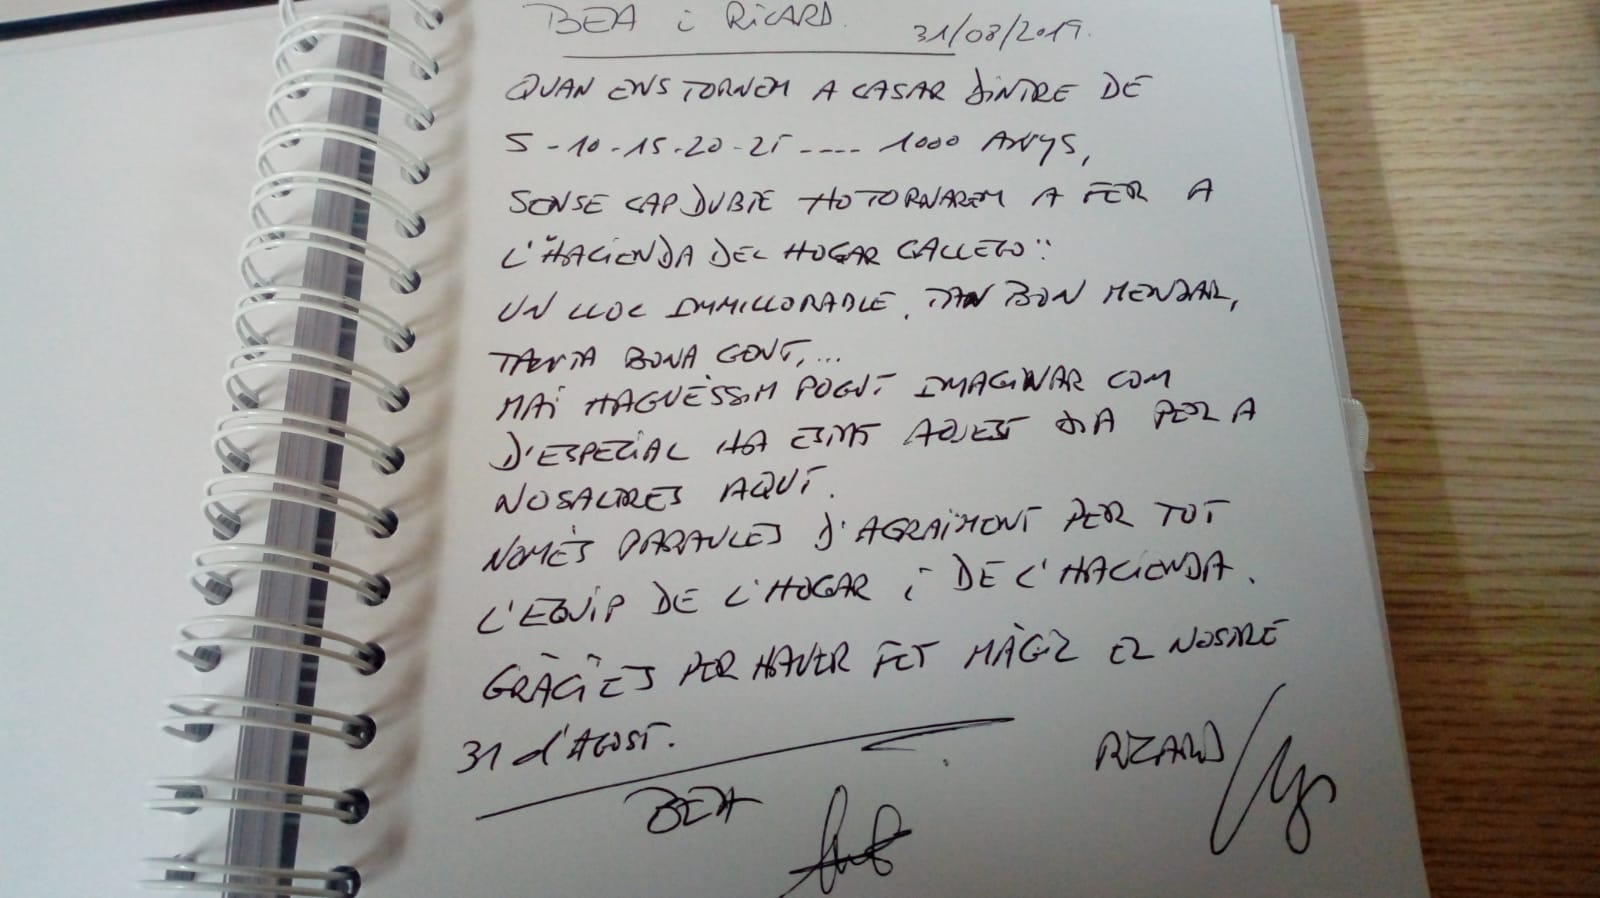 BEA i RICARD. 31/08/2019.
QUAN ENS TORNEM A CASAR DINTRE DE
5-10-15-20-25---- 1000 ANYS,
SENSE CAP DUBTE HO TORNAREM A FER A
L'HACIENDA DEL HOGAR GALLEGO!!
UN LLOC IMMILLORABLE, TAN BON MENJAR,
TANTA BONA GENT,...
MAI HAGUÈSSIM POGUT IMAGINAR COM
D'ESPECIAL HA ESTAT AQUEST DIA PER A
NOSALTRES AQUÍ.
NOMÈS PARAULES D'AGRAÏMENT PER TOT
L'EQUIP DE L'HOGAR i DE L'HACIENDA.
GRÀCIES PER HAVER FET MÀGIC EL NOSTRE
31 d'AGOST.
BEA RICARD